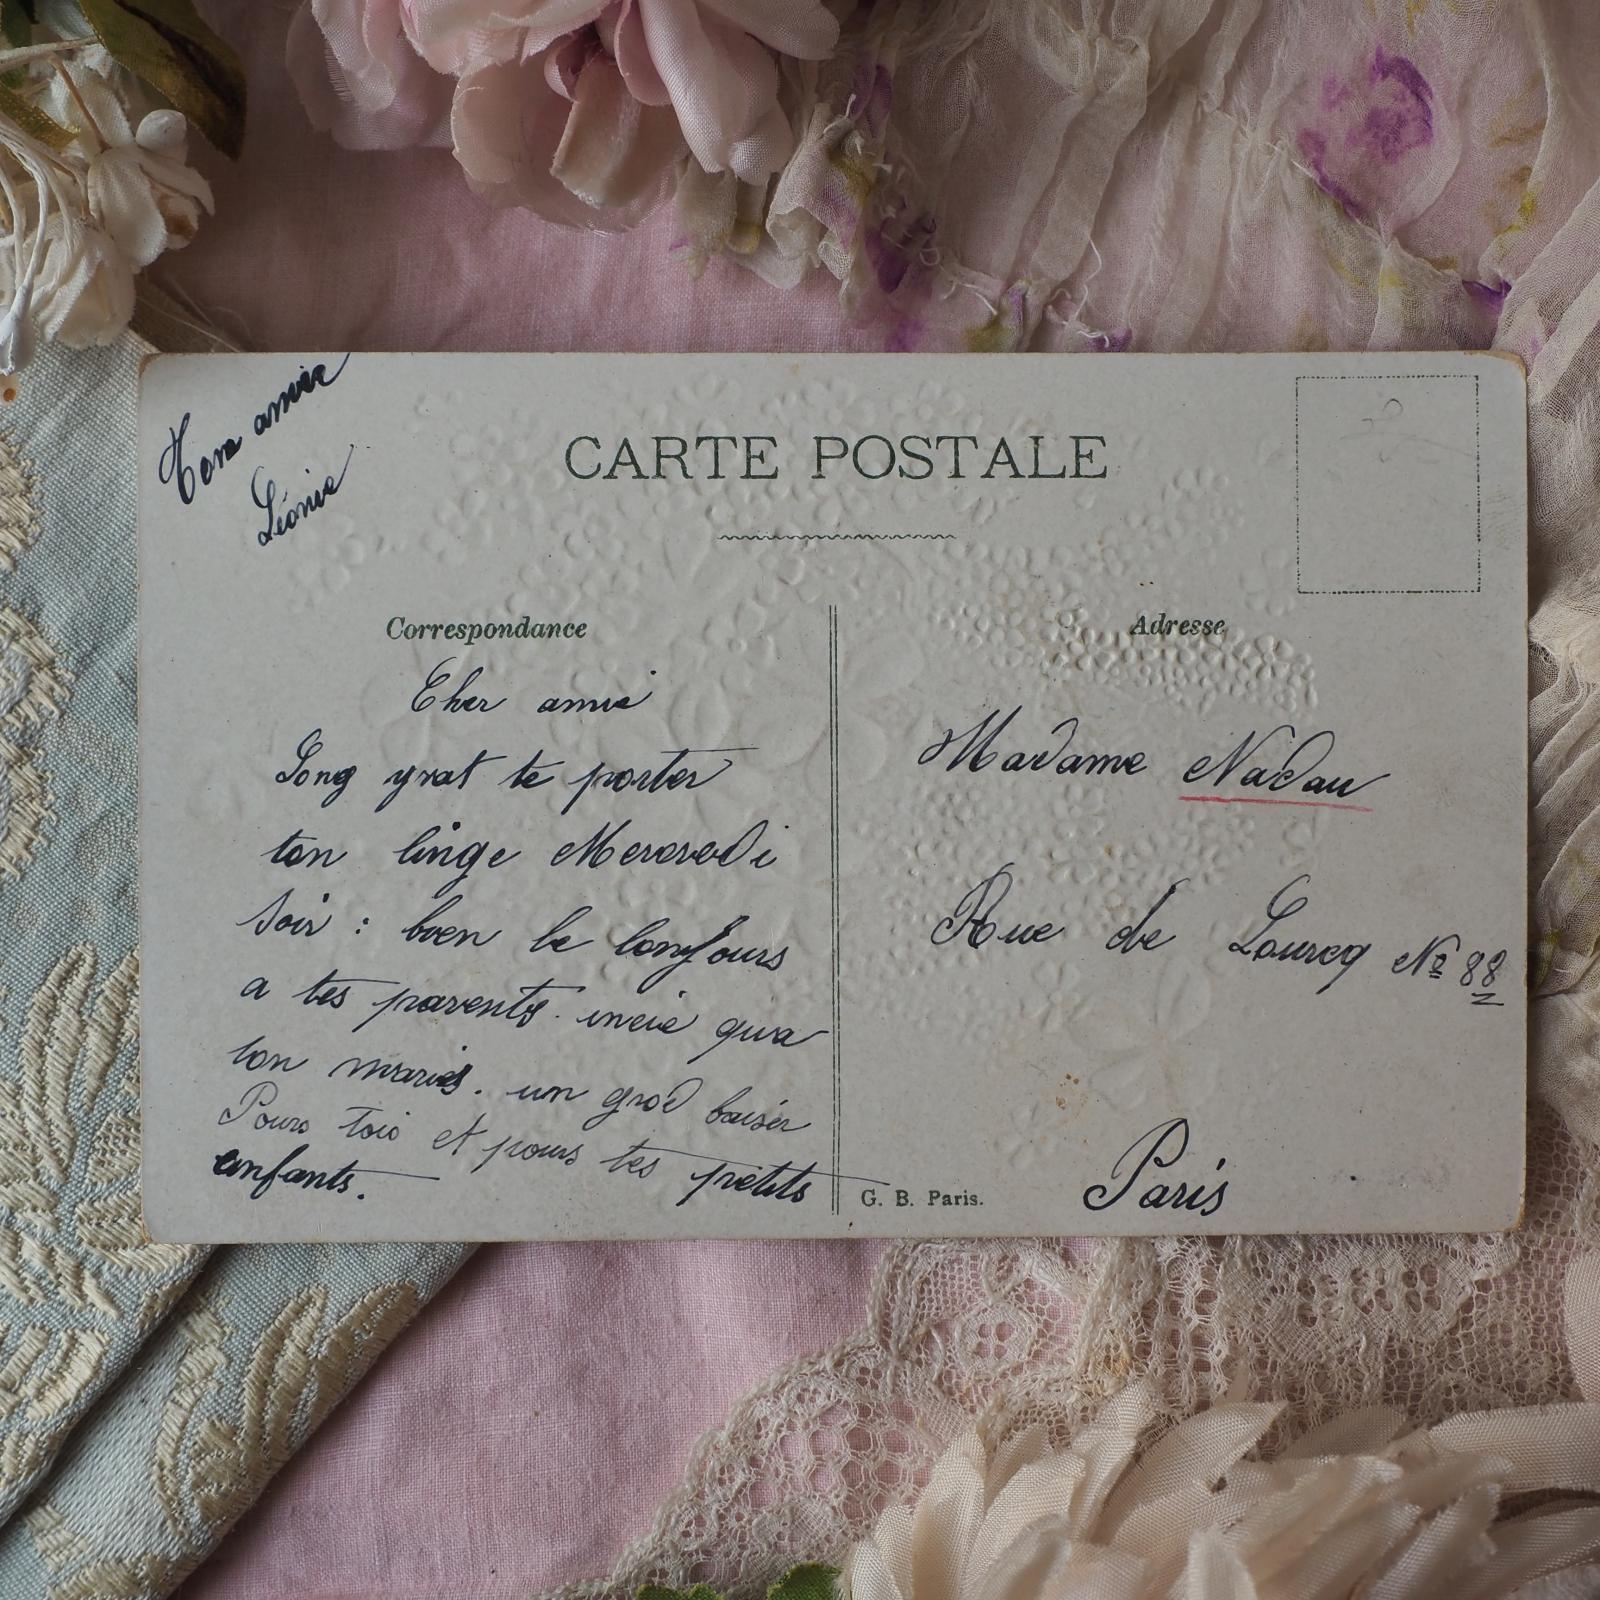 Ton amie
Léonie
CARTE POSTALE
Correspondance
Adresse
Cher amie
Long yrat te porter
ton linge Mercredi
soir : bien le bonjours
a tes parents. incie qua
ton maries. un gros baiser
Pours tois et pours tes petits
enfants.
Madame Nadau
Rue de Lourcq Nº 88
Paris
G. B. Paris.